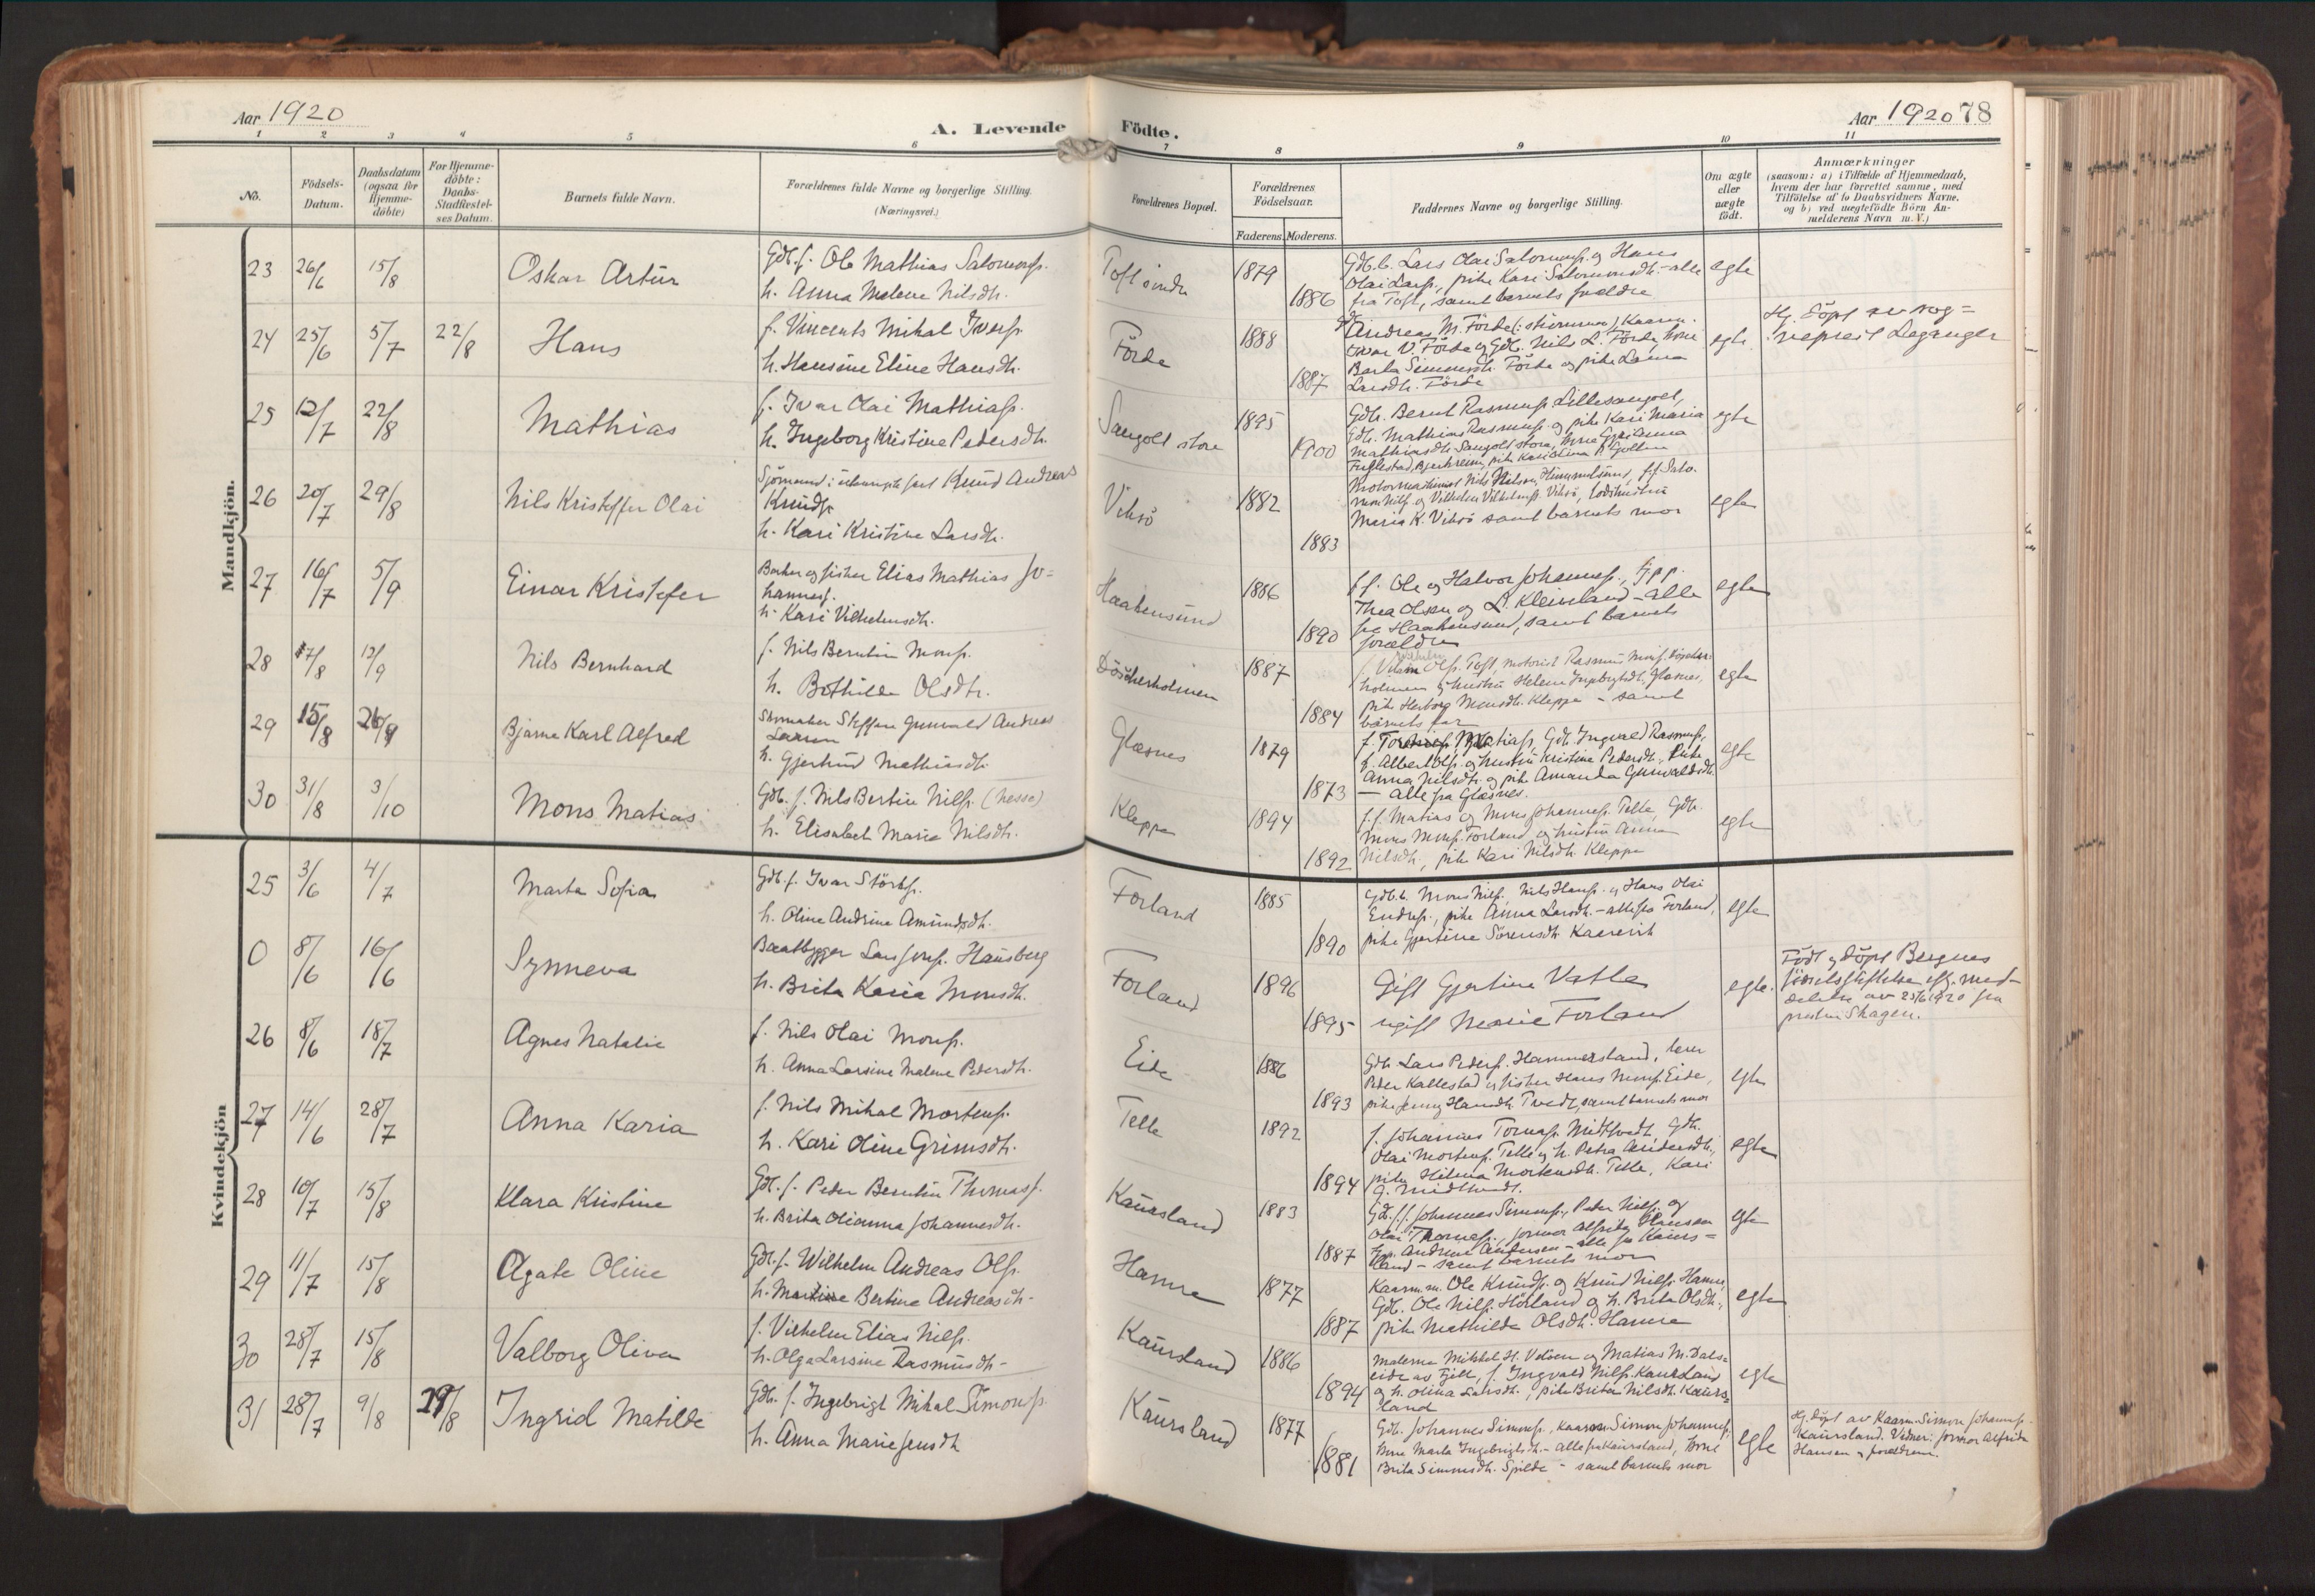 Aar 1920
A. Levende
Födte.
Aar 1920 78
1 2 3 4 5 6 7 8 9 10 11
No.
Födsels-
Datum.
Daabsdatum
(ogsaa for
Hjemme-
döbte)
For Hjemme-
döbte:
Daabs-
Stadfæstel-
ses Datum.
Barnets fulde Navn.
Forældrenes fulde Navne og borgerlige Stilling.
(Næringsvei.)
Forældrenes Bopæl.
Forældrenes
Födselsaar.
Faderens. Moderens.
Faddernes Navne og borgerlige Stilling.
Om ægte
eller
uægte
födt.
Anmærkninger
(saasom: a) i Tilfælde af Hjemmedaab,
hvem der har forrettet samme, med
Tilföielse af to Daabsvidners Navne,
og b) ved uægtefödte Börn An-
melderens Navn m. V.)
Mandkjön.
23 26/6 15/8 Oskar Artur
Gdb. f. Ole Mathias Salomons.
h. Anna Malene Nilsdh.
Toft öindre 1879 1886
Gdb.b. Lars Olai Salomons. og Hans
Olai Lars., pike Kari Salomonsdh. - alle
fra Toft, samt barnets foreldre
egte
24 25/6 5/7 22/8 Hans
f. Vincents Mikal Ivers.
h. Hansine Eline Hansdh.
Förde 1888 1887
Andreas M. Förde
Ivar V. Förde og Gdb. Nils L. Förde, kone
Berta Simonsdh. Förde og pike Laura
Larsdh. Förde
egte
Hj. döpt av sog=
neprest Leganger
25 12/7 22/8 Mathias
f. Ivar Olai Mathias.
h. Ingeborg Kristine Pedersdh.
Sangolt store 1895 1900
Gdb. Bernt Rasmus. Lillesangolt,
Gdb. Mathias Rasmus. og pike Kari Maria
Mathiasdh. Sangolt store,
egte
26 20/7 29/8 Nils Kristoffer Olai
Sjömand i utenrigsfart Knud Andreas
Knuds.
h. Kari Kristine Larsdh.
Viksö 1882 1883
Motormaskinist Nils Nilsen, Himmelsund, f.f. Salo-
mon Nils. og Vilhelm Vilhelms. Viksö,
Maria K. Viksö samt barnets mor
egte
27 16/7 5/9 Einar Kristofer
Baker og fisker Elias Mathias Jo=
hannes.
h. Kari Vilhelmsdh.
Haakensund 1886 1890
f.f. Ole og Halvor Johannes.,
Thea Olsen og L. Kleivland - alle
fra Haakensund, samt barnets
foreldre
egte
28 7/8 12/9 Nils Bernhard
f. Nils Berntin Mons.
h. Bothilde Olsdh.
Döscherholmen 1887 1884
Ols. Toft, motorist Rasmus Mons. Döscher-
holmen og hustru Helene Ingebrigtsdh. Glesnes,
pike Herborg Monsdh. Kleppe - samt
barnets far
egte
29 15/8 26/9 Bjarne Karl Alfred
Skomaker Steffen Gunvald Andreas
Larsen
h. Gjertrud Mathiasdh.
Glesnes 1879 1873
Matias., Gdb. Ingvald Rasmus.,
f. Albert Ols. og hustru Kristine Pedersdh., Pike
Anna Nilsdh. og pike Amanda Gunvaldsdh.
- alle fra Glesnes.
egte
30 31/8 3/10 Mons Matias
Gdb. f. Nils Bertin Nils. (Nesse)
h. Elisabet Marie Nilsdh.
Kleppe 1894 1892
f.f. Matias og Mons Johannes. Telle, Gdb.
Mons Mons. Forland og hustru Anna
Nilsdh., pike Kari Nilsdh. Kleppe
egte
Kvindekjön
25 3/6 4/7 Marta Sofia
Gdb. f. Ivar Störks.
h. Oline Andrine Amundsdh.
Forland 1885 1890
Gdb.b. Mons Nils., Nils Hans. og Hans Olai
Endres., pike Anna Larsdh. - alle fra Forland,
pike Gjertine Sörensdh. Kaarevik
egte
0 8/6 16/6 Synneva
Baatbygger Lars Jons. Hausberg
h. Brita Karia Monsdh.
Forland 1896 1895
Gift Gjertine Vatle
ugift Marie Forland
egte.
Födt og döpt Bergens
födselsstiftelse efg. med-
delelse av 23/6 1920 fra
presten Skagen.
26 8/6 18/7 Agnes Natalie
f. Nils Olai Mons.
h. Anna Larsine Malene Pedersdh.
Eide 1886 1893
Gdb. Lars Peders. Hammersland, lærer
Peder Kallestad og fisker Hans Mons. Eide,
pike Jenny Hansdh. Tvedt, samt barnets mor
egte
27 14/6 28/7 Anna Karia
f. Nils Mikal Mortens.
h. Kari Oline Grimsdh.
Telle 1892 1894
f. Johannes Tomas. Midttvedt, Gdb.
Olai Mortens. Telle og h. Petra Andersdh.,
pike Helena Mortensdh. Telle, Kari
G. Midttvedt.
egte
28 10/7 15/8 Klara Kristine
Gdb. f. Peder Berntin Thomas.
h. Brita Olianna Johannesdh.
Kaursland 1883 1887
Gdb. f.f. Johannes Simons., Peder Nils. og
Olai Thomas., jormor Alfrida Hansen
Andrine Andersen - alle fra Kaurs=
land - samt barnets mor
egte
29 11/7 15/8 Agate Oline
Gdb. f. Wilhelm Andreas Ols.
h. Martine Bertine Andreasdh.
Hamre 1877 1887
Kaarm. Ole Knuds. og Knud Nils. Hamre,
Gdb. Ole Nils. Hörland og h. Brita Olsdh.,
pike Mathilde Olsdh. Hamre
egte
30 28/7 15/8 Valborg Oliva
f. Vilhelm Elias Nils.
h. Olga Larsine Rasmusdh.
Kaursland 1886 1894
Malerne Mikkel H. Veloen og Matias M. Dals=
eide av Fjell, f. Ingvald Nils. Kaursland
og h. Olina Larsdh., pike Brita Nilsdh. Kaurs=
land
egte
31 28/7 9/8 29/8 Ingrid Matilde
Gdb. f. Ingebrigt Mikal Simons.
h. Anna Marie Jensdh
Kaursland 1877 1881
Gdb. Johannes Simons., Kaarm. Simon Johannes.,
kone Marta Ingebrigtsdh. - alle fra Kaursland, kone
Brita Simonsdh. Spilde - samt barnets mor
egte
Hj. döpt av Kaarm. Simon Johannes.
Kaursland. Vidner: jormor Alfrida
Hansen og foreldrene.